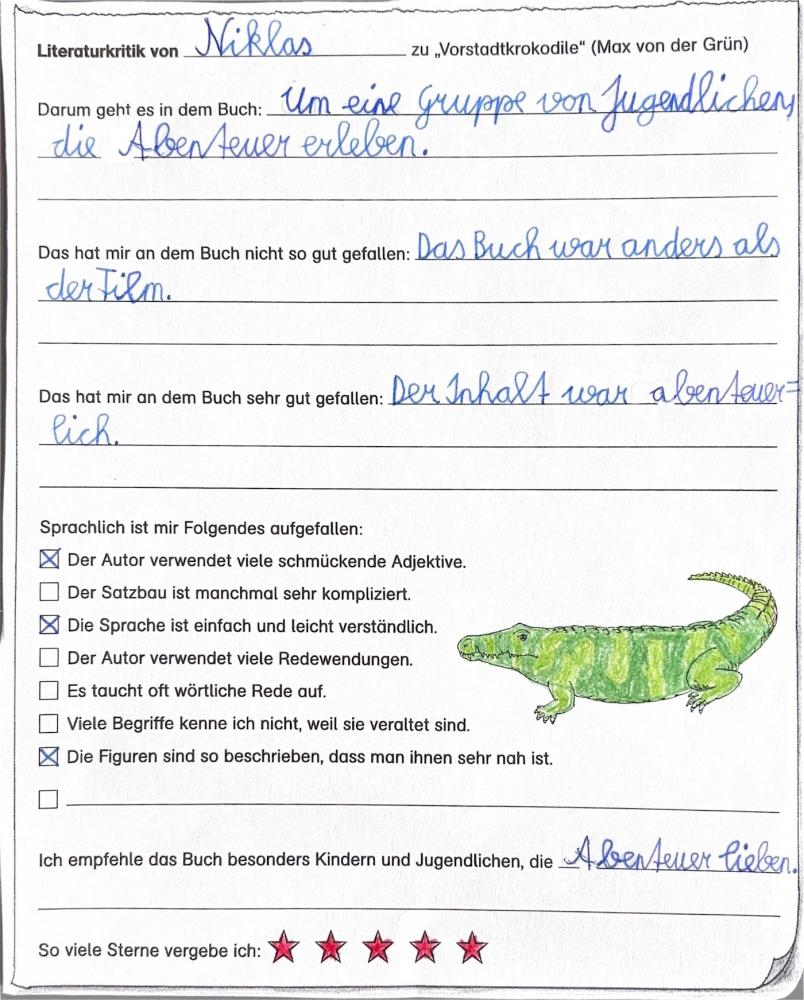 Literaturkritik von Niklas zu „Vorstadtkrokodile“ (Max von der Grün)
Darum geht es in dem Buch: Um eine Gruppe von Jugendlichen,
die Abenteuer erleben.
Das hat mir an dem Buch nicht so gut gefallen: Das Buch war anders als
der Film.
Das hat mir an dem Buch sehr gut gefallen: Der Inhalt war abenteuer=
lich.
Sprachlich ist mir Folgendes aufgefallen:
☒ Der Autor verwendet viele schmückende Adjektive.
☐ Der Satzbau ist manchmal sehr kompliziert.
☒ Die Sprache ist einfach und leicht verständlich.
☐ Der Autor verwendet viele Redewendungen.
☐ Es taucht oft wörtliche Rede auf.
☐ Viele Begriffe kenne ich nicht, weil sie veraltet sind.
☒ Die Figuren sind so beschrieben, dass man ihnen sehr nah ist.
☐
Ich empfehle das Buch besonders Kindern und Jugendlichen, die Abenteuer lieben.
So viele Sterne vergebe ich: ★ ★ ★ ★ ★